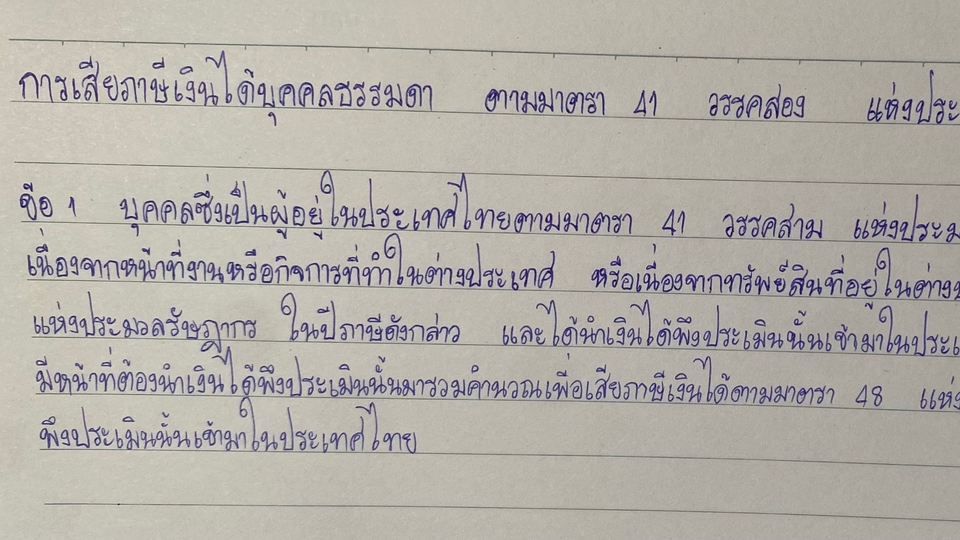 การเสียภาษีเงินได้บุคคลธรรมดา ตามมาตรา 41 วรรคสอง แห่งประ
ข้อ 1 บุคคลซึ่งเป็นผู้อยู่ในประเทศไทยตามมาตรา 41 วรรคสาม แห่งประม
เนื่องจากหน้าที่งานหรือกิจการที่ทำในต่างประเทศ หรือเนื่องจากทรัพย์สินที่อยู่ในต่าง
แห่งประมวลรัษฎากร ในปีภาษีดังกล่าว และได้นำเงินได้พึงประเมินนั้นเข้ามาในประเ
มีหน้าที่ต้องนำเงินได้พึงประเมินนั้นมารวมคำนวณเพื่อเสียภาษีเงินได้ตามมาตรา 48 แห่ง
พึงประเมินนั้นเข้ามาในประเทศไทย